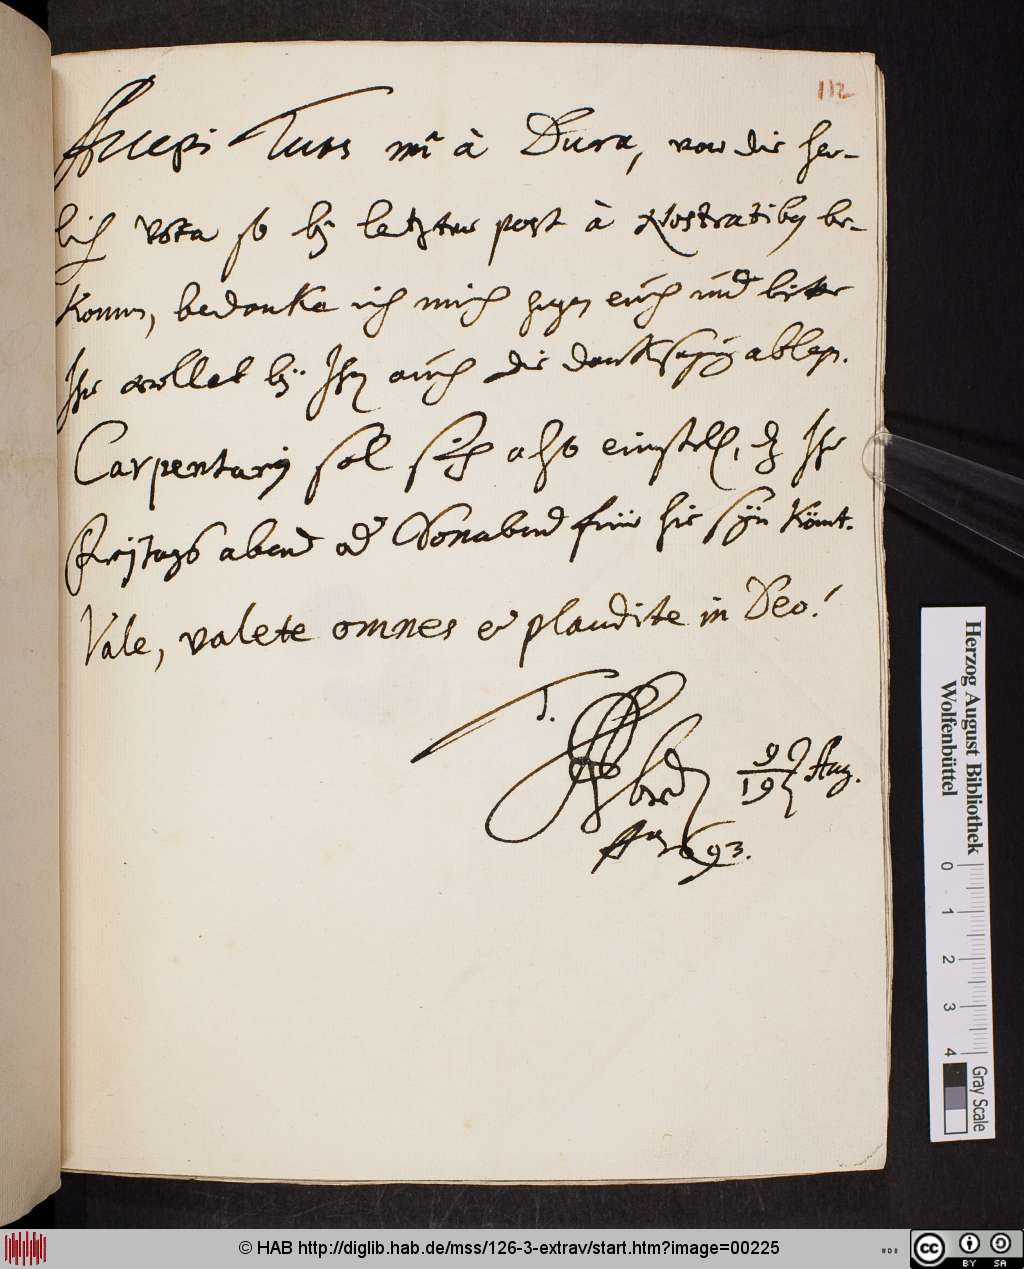 112
Accepi Tuas mi à Dura, vor die her-
lich vota so bÿ letzter post à Nostratibus be-
komen, bedanke ich mich gegen euch und bitte
Ihr wollet bÿ Ihn auch die danksagung ableg.
Carpentarius sol sich also einstell, dz Ihr
Freÿtags abend od Sonabend früe hie sÿn könt.
Vale, valete omnes et plaudite in Deo!
T.
9/19 Aug.
Ao 693.
Herzog August Bibliothek
Wolfenbüttel
0 1 2 3 4
Gray Scale
© HAB http://diglib.hab.de/mss/126-3-extrav/start.htm?image=00225
cc BY SA